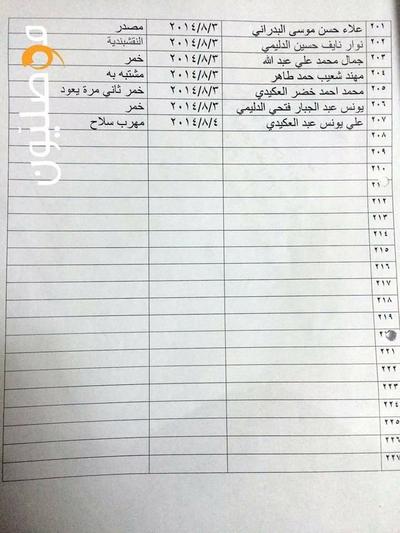 ٢٠١ علاء حسن موسى البدراني ٢٠١٤/٨/٣ مصدر
٢٠٢ نوار نايف حسين الدليمي ٢٠١٤/٨/٣ النقشبندية
٢٠٣ جمال محمد علي عبد الله ٢٠١٤/٨/٣ خمر
٢٠٤ مهند شعيب حمد طاهر ٢٠١٤/٨/٣ مشتبه به
٢٠٥ محمد احمد خضر العكيدي ٢٠١٤/٨/٣ خمر ثاني مرة يعود
٢٠٦ يونس عبد الجبار فتحي الدليمي ٢٠١٤/٨/٣ خمر
٢٠٧ علي يونس عبد العكيدي ٢٠١٤/٨/٤ مهرب سلاح
٢٠٨
٢٠٩
٢١٠
٢١٢
٢١٣
٢١٤
٢١٥
٢١٦
٢١٧
٢١٨
٢١٩
٢٢١
٢٢٢
٢٢٣
٢٢٤
٢٢٥
٢٢٦
٢٢٧
موصليون